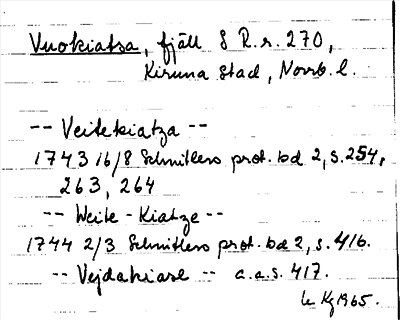 Vuokiatsa, fjäll S R.r. 270,
Kiruna stad, Norrb. l.
-- Veitekiatza --
1743 16/8 Schnitlers prot. bd 2, s. 254,
263, 264
-- Weite-Kiatze --
1744 2/3 Schnitlers prot. bd 2, s. 416.
-- Vejdakiase -- a.a.s. 417.
Kg 1965.